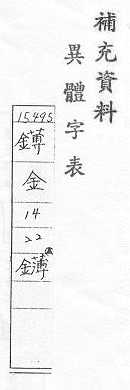 補充資料
異體字表
15495
鑮
金
14
22